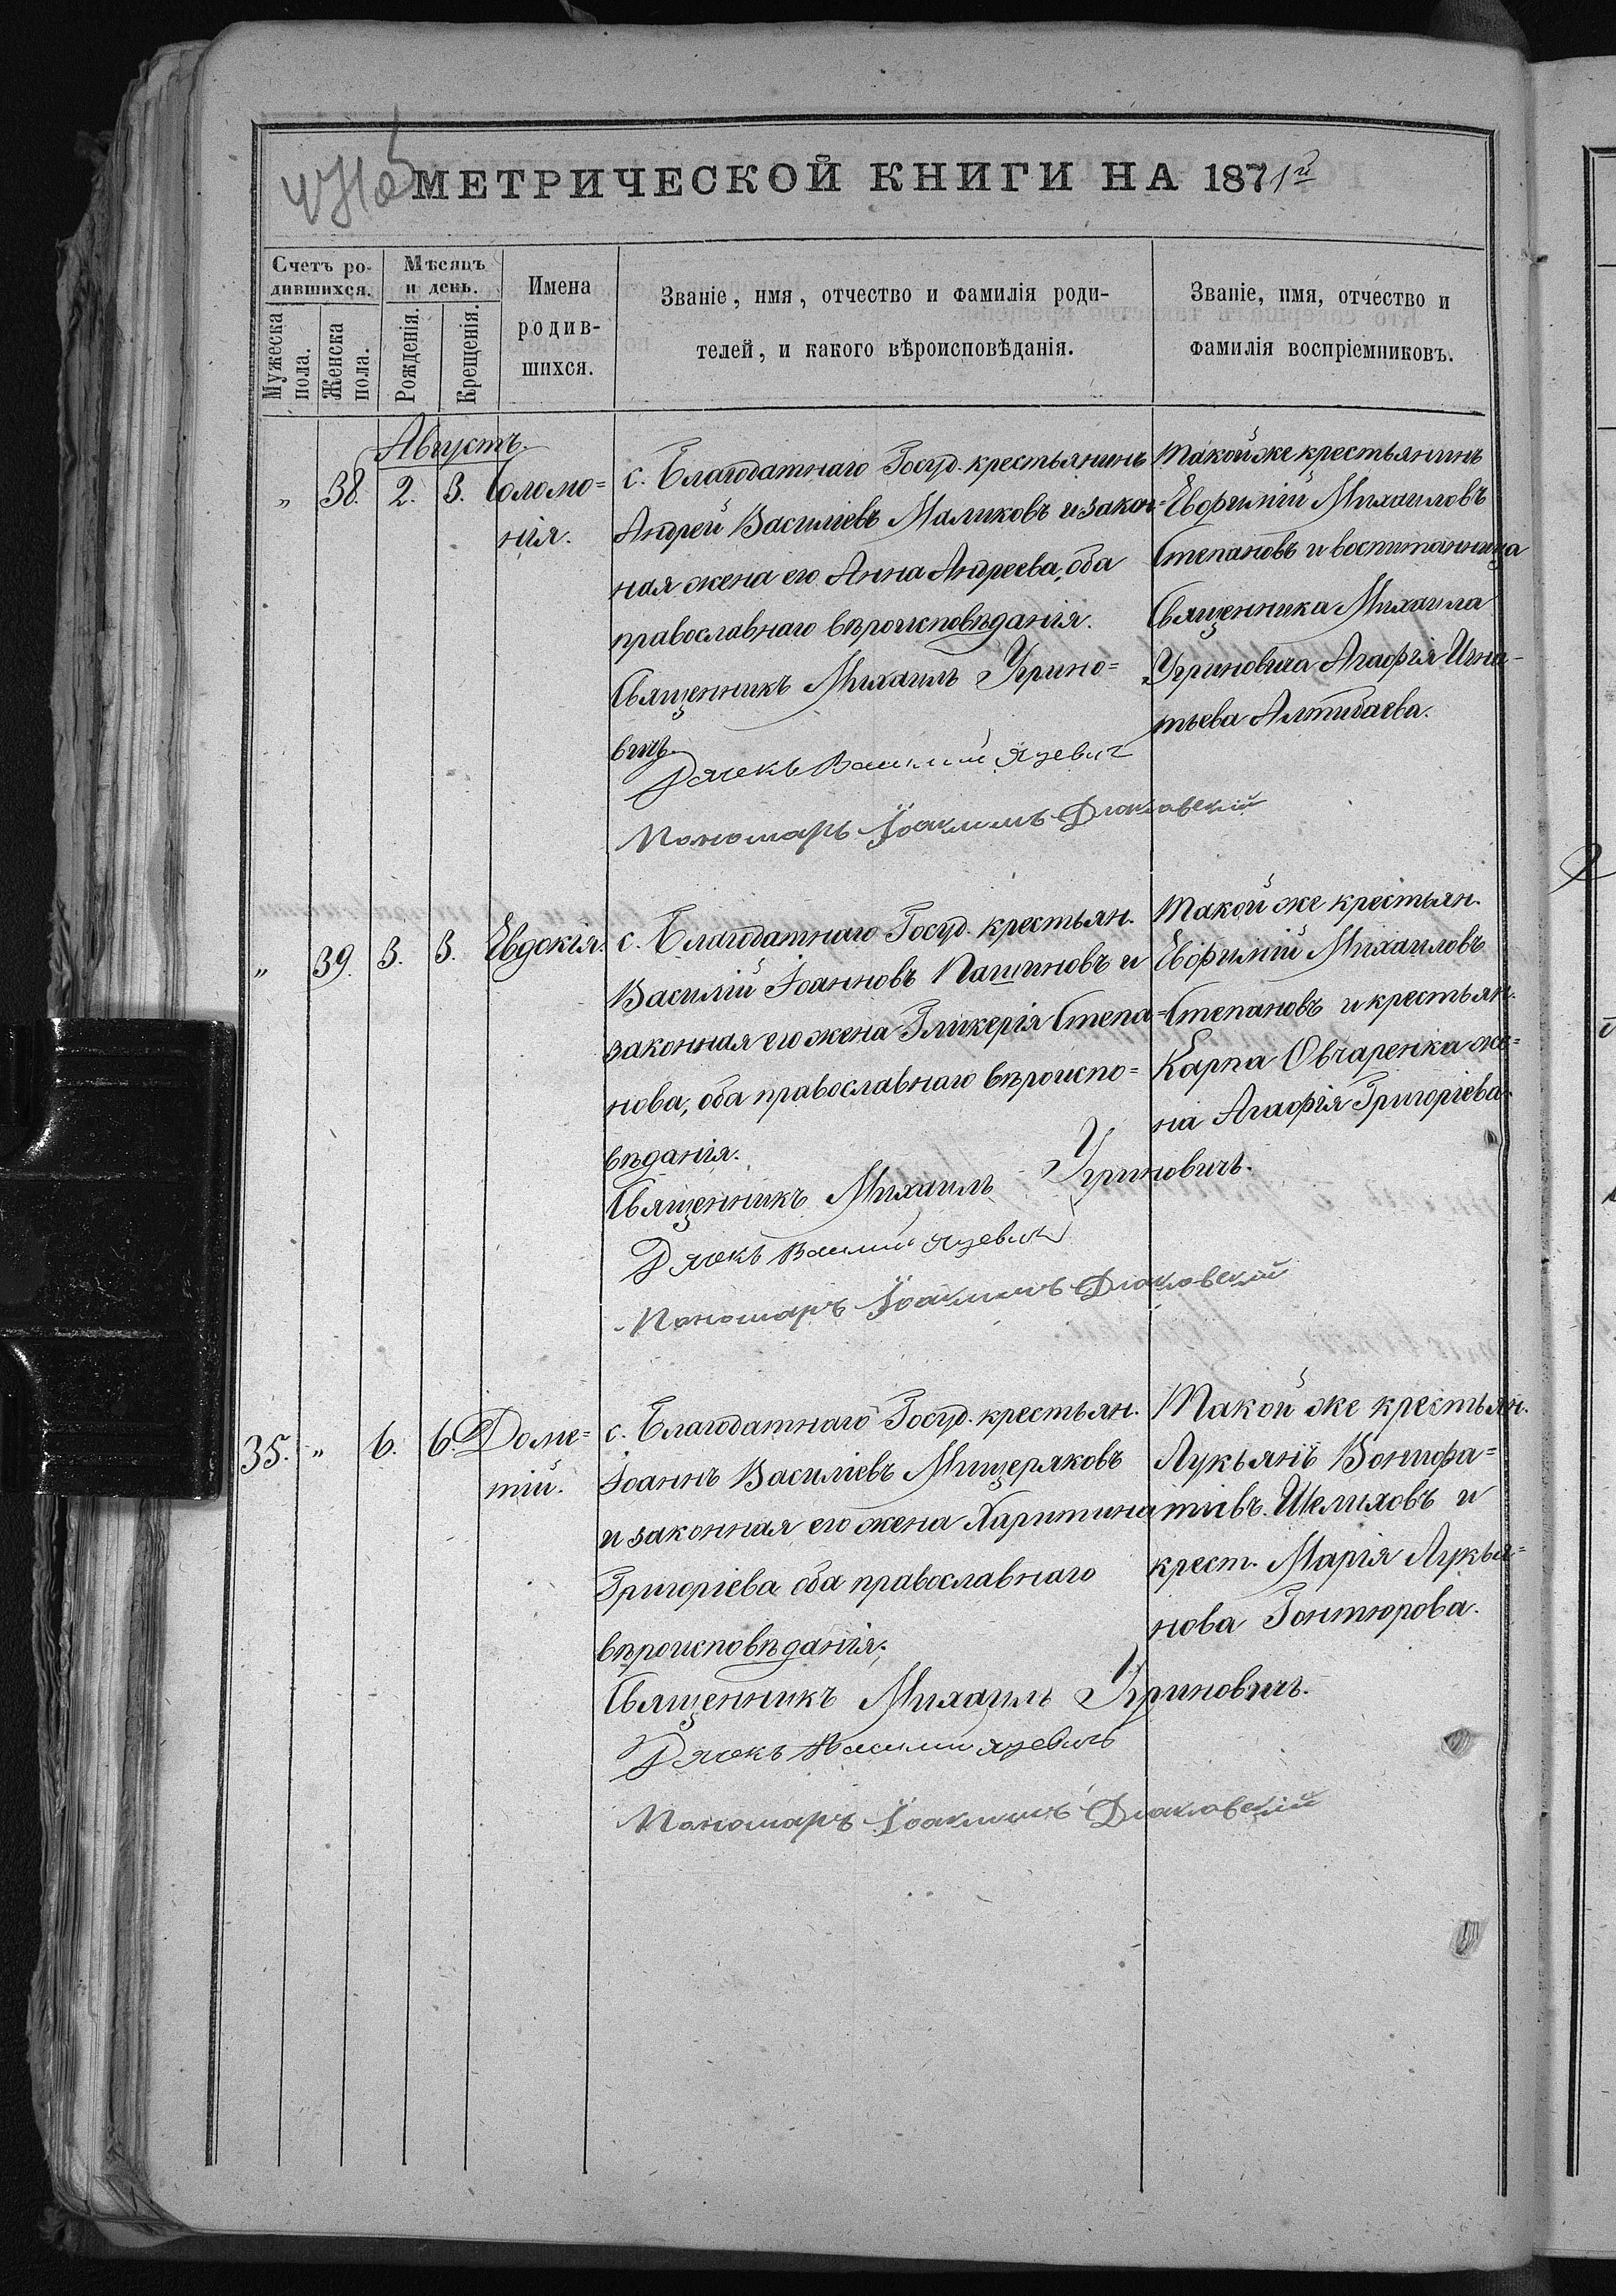 МЕТРИЧЕСКОЙ КНИГИ НА 1871й
Счетъ ро-
дившихся.
Мужеска
пола.
Женска
пола.
Мѣсяцъ
и день.
Рожденія.
Крещенія.
Имена
родив-
шихся.
Званіе, имя, отчество и фамилія роди-
телей, и какого вѣроисповѣданія.
Званіе, имя, отчество и
фамилія воспріемниковъ.
Августъ.
„ 38. 2. 3. Соломо=
нія.
с. Благодатнаго Госуд. крестьянинъ
Андрей Василіевъ Маликовъ и закон=
ная жена его Анна Андреева, оба
православнаго вѣроисповѣданія.
Священникъ Михаилъ Угрино=
вичъ.
Дячекъ Василий Язевич
Пономарь Іоакимъ Диаковский
Такойже крестьянинъ
Евфимій Михаиловъ
Степановъ и воспитанница
Священника Михаила
Угриновича Агафія Игна-
тьева Алтибаева.
„ 39. 3. 3. Евдокія.
с. Благодатнаго Госуд. крестьян.
Василій Іоанновъ Пашиновъ и
законная его жена Гликерія Степа=
нова, оба православнаго вѣроиспо=
вѣданія.
Священникъ Михаилъ Угриновичъ.
Дячекъ Василий Язевичъ
Пономаръ Іоакимъ Диаковский
Такой же крестьян.
Евфимій Михаиловъ
Степановъ и крестьян.
Карпа Овчаренка же=
на Агафія Григоріева.
35. „ 6. 6. Доме=
тій.
с. Благодатнаго Госуд. крестьян.
Іоаннъ Василіевъ Мищеряковъ
и законная его жена Харитина
Григоріева оба православнаго
вѣроисповѣданія.
Священникъ Михаилъ Угриновичъ.
Дячекъ Василий Язевичъ
Пономаръ Іоакимъ Диаковский
Такой же крестьян.
Лукьянъ Вонифа=
тіевъ Шелиховъ и
крест. Марія Лукья=
нова Гонтюрова.